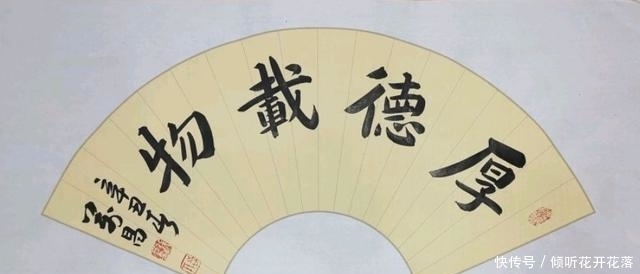 厚德載物
辛丑年
快传号／倾听花开花落